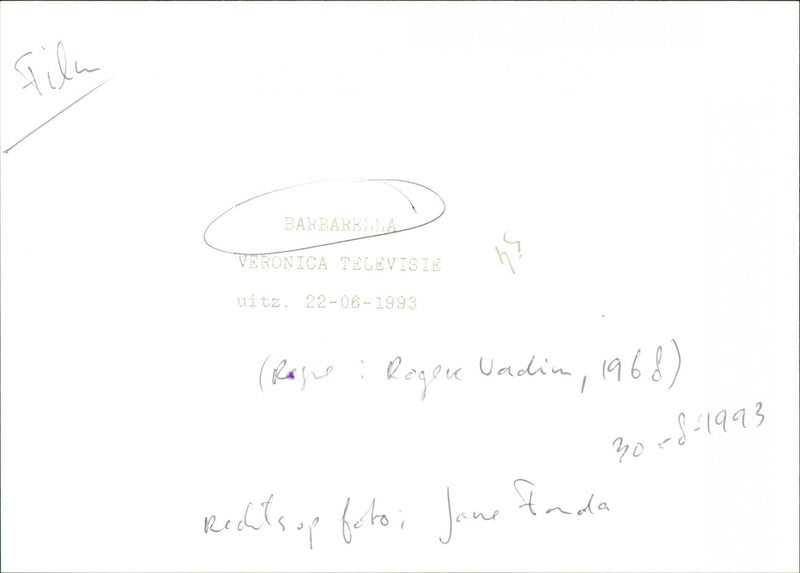 Film
BARBARELLA
VERONICA TELEVISIE
uitz. 22-06-1993
(Regie : Roger Vadim, 1968)
30-8-1993
Rechts op foto: Jane Fonda